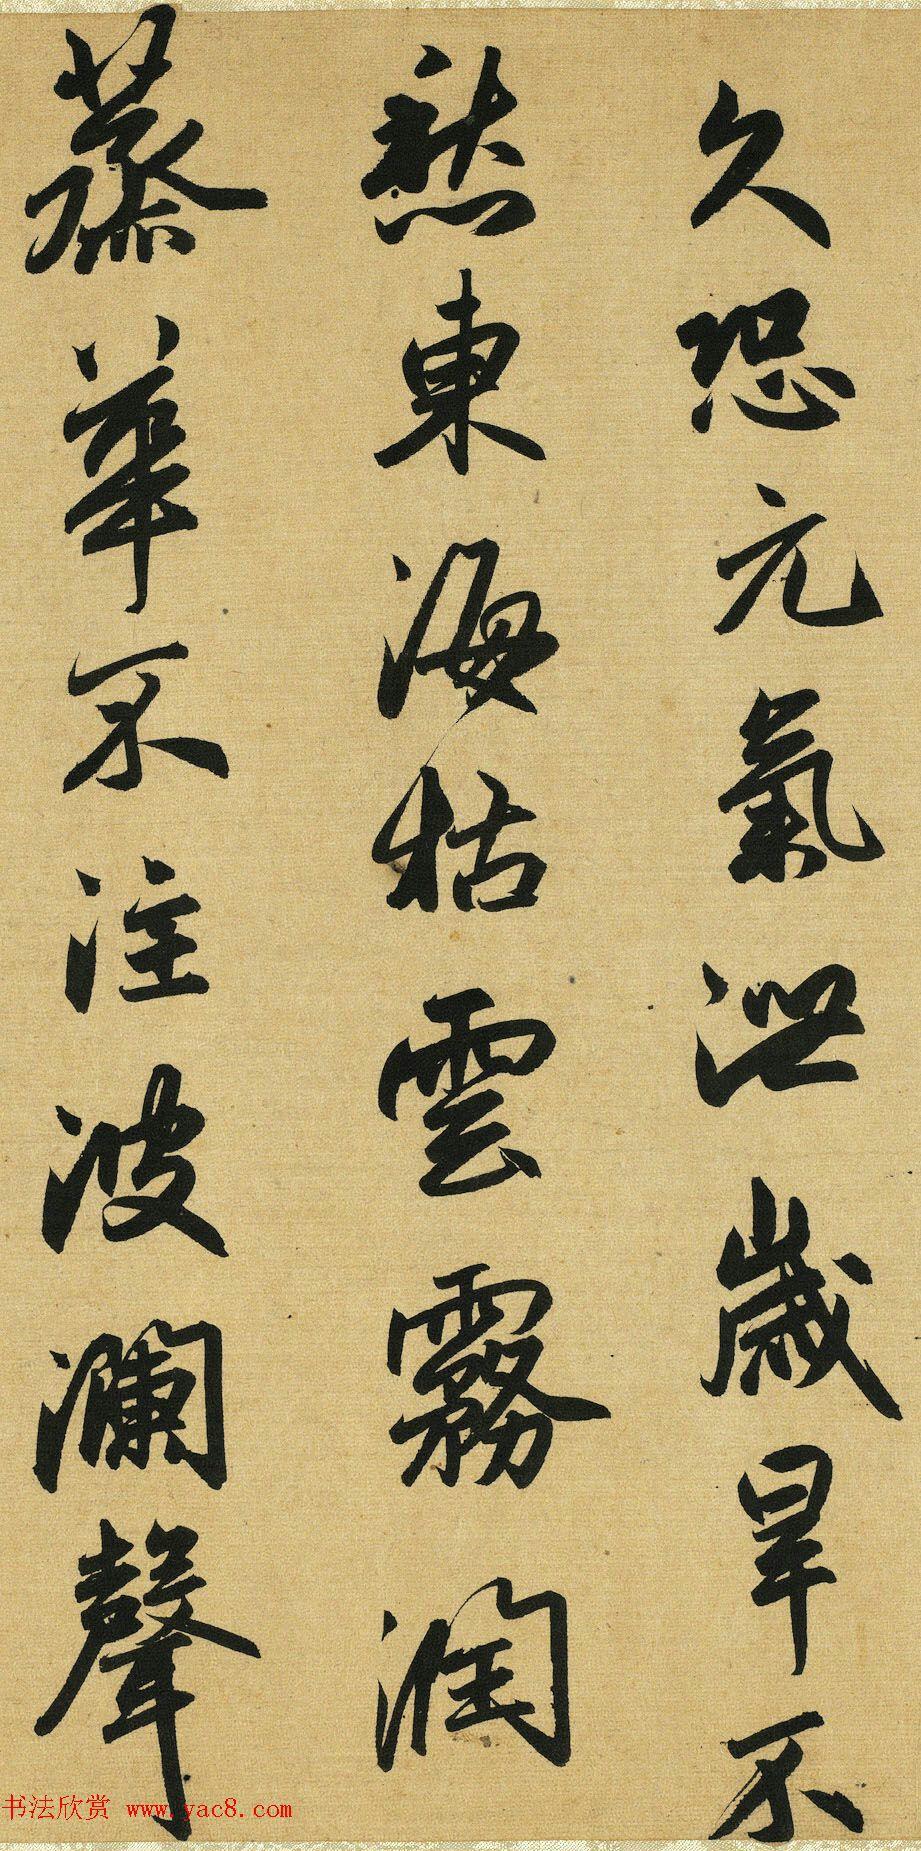 久恐元氣泄歲旱不
愁東海枯雲霧潤
蒸華不注波瀾聲
书法欣赏 www.yac8.com